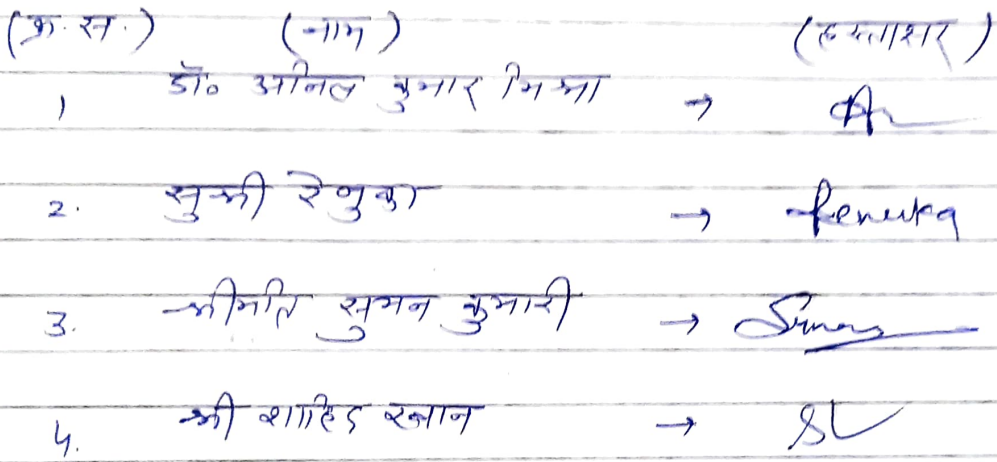 (क्र. स.) (नाम) (हस्ताक्षर)
1) डॉ० अनिल कुमार मिश्रा →
2. सुश्री रेणुका → Renuka
3. श्रीमति सुमन कुमारी → Suman
4. श्री शाहिद खान →